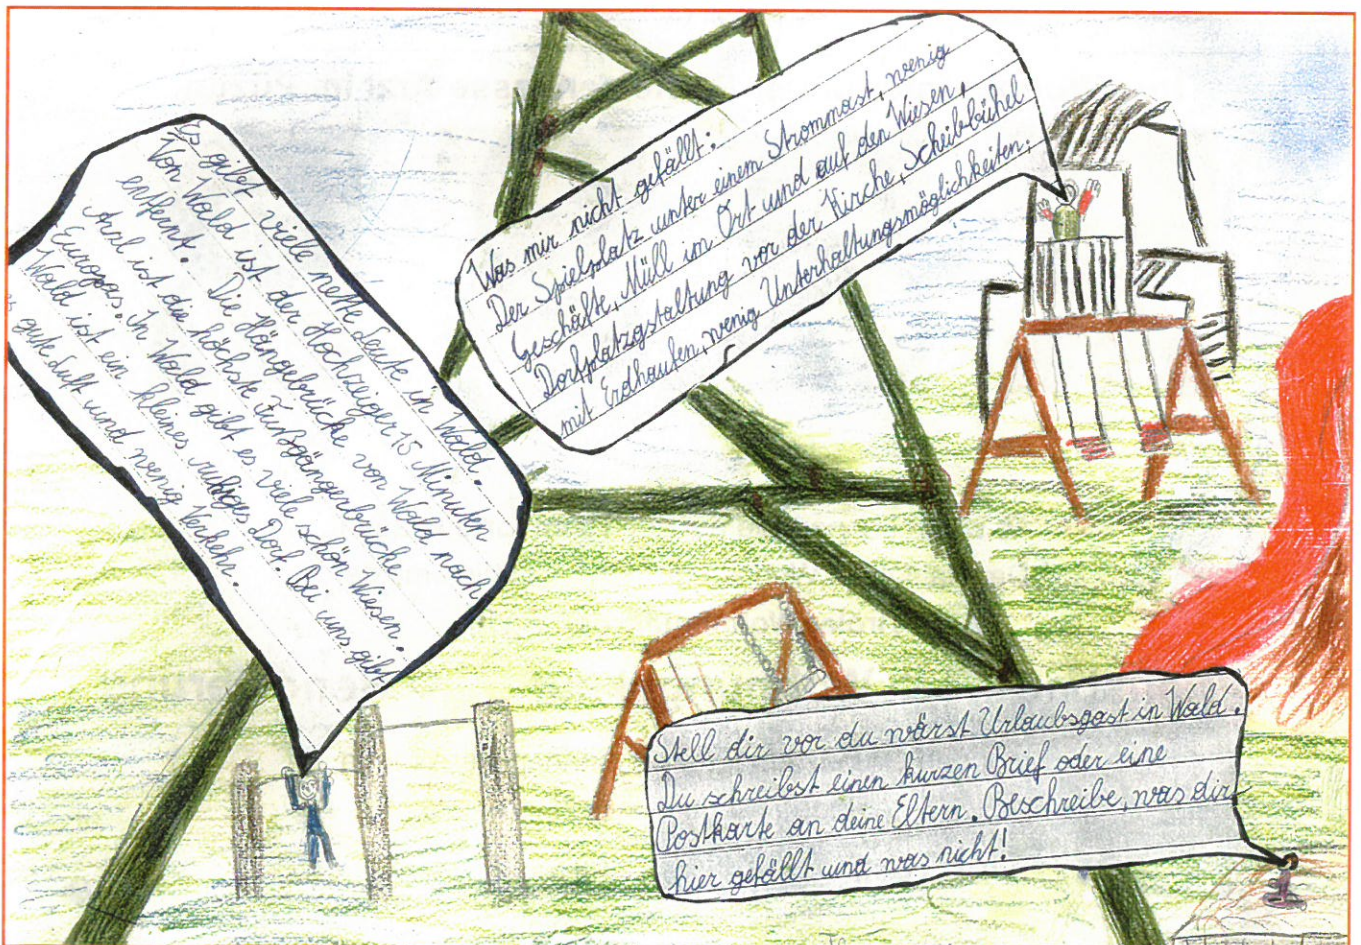 Es gibt viele nette Leute in Wald.
Von Wald ist der Hochzeiger 15 Minuten
entfernt. Die Hängebrücke von Wald nach
Arzl ist die höchste Fußgängerbrücke
Europas. In Wald gibt es viele schön Wiesen.
Wald ist ein kleines ruhiges Dorf. Bei uns gibt
es gute Luft und wenig Verkehr.
Was mir nicht gefällt:
Der Spielplatz unter einem Strommast, wenig
Geschäfte, Müll im Ort und auf den Wiesen,
Dorfplatzgstaltung vor der Kirche, Scheibbühel
mit Erdhaufen, wenig Unterhaltungsmöglichkeiten.
Stell dir vor du wärst Urlaubsgast in Wald.
Du schreibst einen kurzen Brief oder eine
Postkarte an deine Eltern. Beschreibe, was dir
hier gefällt und was nicht!